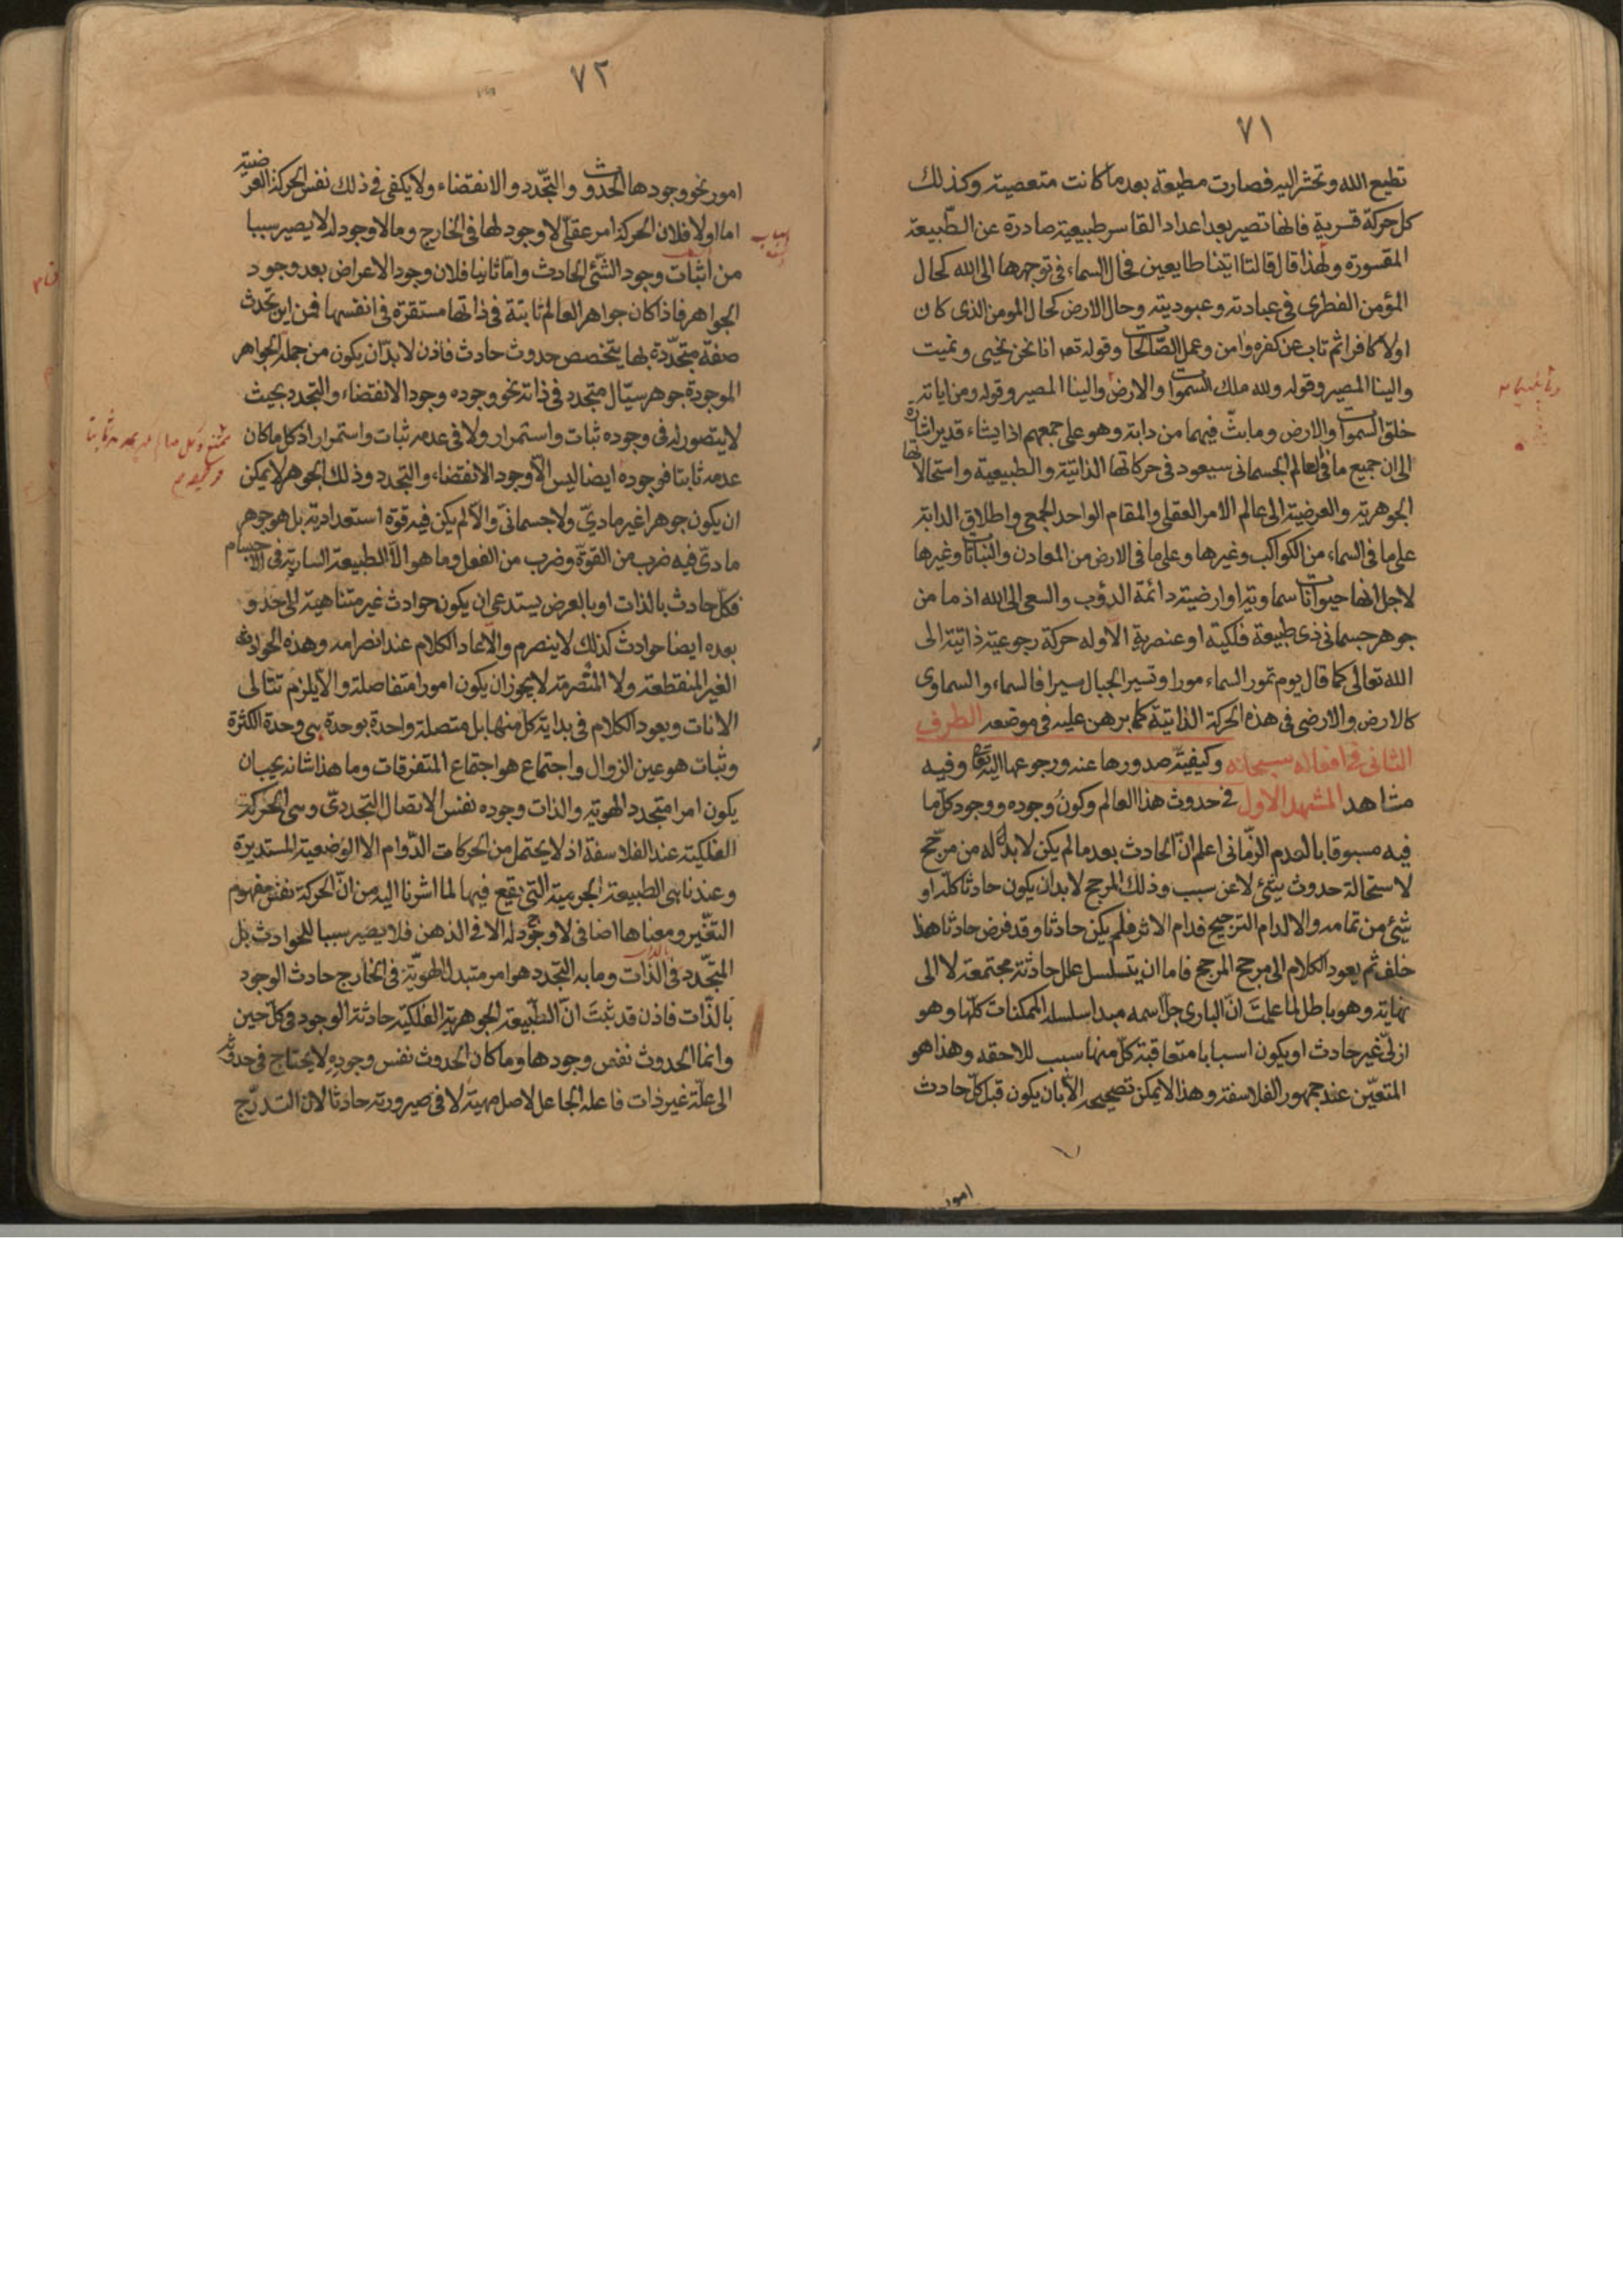 ٧١
تطيع الله وتحشر اليه فصارت مطيعة بعد ما كانت متعصية وكذلك
كل حركة قسرية فانها تصير بعد اعداد القاسر طبيعية صادرة عن الطّبيعة
المقسورة ولهذا قال قالتا اتينا طايعين فحال السماء فى توجهها الى الله كحال
المؤمن الفطرى فى عبادته وعبوديته وحال الارض كحال المومن الذى كان
اولا كافرا ثم تاب عن كفره وامن وعمل الصّالحات وقوله تعه انا نحن نحيى ونميت
والينا المصير وقوله ولله ملك السموات والارض والينا المصير وقوله ومن اياته
خلق السموات والارض وما بثّ فيهما من دابة وهو على جمعهم اذا يشاء قدير اشارة
الى ان جميع ما فى العالم الجسمانى سيعود فى حركاتها الذاتية والطبيعية واستحالاتها
الجوهرية والعرضية الى عالم الامر العقلى والمقام الواحد الجمعى واطلاق الدابة
على ما فى السماء من الكواكب وغيرها وعلى ما فى الارض من المعادن والنباتات وغيرها
لاجل انها حيوانات سماوية او ارضية دائمة الدؤب والسعى الى الله اذ ما من
جوهر جسمانى ذى طبيعة فلكية او عنصرية الا وله حركة رجوعية ذاتية الى
الله تعالى كما قال يوم تمور السماء مورا وتسير الجبال سيرا فالسماء والسماوى
كالارض والارضى فى هذه الحركة الذاتية كما برهن عليه فى موضعه الطرف
الثانى فى افعاله سبحانه وكيفيّة صدورها عنه ورجوعها اليه تعا وفيه
مشاهد المشهد الاول فى حدوث هذا العالم وكون وجوده ووجود كلّ ما
فيه مسبوقا بالعدم الزّمانى اعلم انّ الحادث بعد ما لم يكن لا بد له من مرجّح
لاستحالة حدوث شئ لا عن سبب وذلك المرجح لا بد ان يكون حادثا كلّه او
شئ من تمامه والا لدام الترجيح فدام الاثر فلم يكن حادثا وقد فرض حادثا هذا
خلف ثم يعود الكلام الى مرجح المرجح فاما ان يتسلسل علل حادثة مجتمعة لا الى
نهاية وهو باطل لما علمت انّ البارى جلّ اسمه مبدا سلسله الممكنات كلّها وهو
ازلىّ غير حادث او يكون اسبابا متعاقبة كلّ منها سبب للاحقه وهذا هو
المتعيّن عند جمهور الفلاسفة وهذا لا يمكن تصحيحه الّا بان يكون قبل كلّ حادث
امور
٧٢
امور نحو وجودها الحدوث والتجّدد والانقضاء ولا يكفى فى ذلك نفس الحركة العرضية
اما اولا فلان الحركة امر عقلىّ لا وجود لها فى الخارج وما لا وجود له لا يصير سببا
من اثبات وجود الشّئ الحادث وامّا ثانيا فلان وجود الاعراض بعد وجود
الجواهر فاذا كان جواهر العالم ثابتة فى ذاتها مستقرة فى انفسها فمن اين تحدث
صفة متجّددة بها يتخصص حدوث حادث فاذن لا بدّ ان يكون من جملة الجواهر
الموجودة جوهر سيّال متجدد فى ذاته نحو وجوده وجود الانقضاء والتجدد بحيث
لا يتصور له فى وجوده ثبات واستمرار ولا فى عدمه ثبات واستمرار اذ كل ما كان
عدمه ثابتا فوجوده ايضا ليس الّا وجود الانقضاء والتجدد وذلك الجوهر لا يمكن
ان يكون جوهرا غير مادىّ ولا جسمانىّ والّا لم يكن فيه قوة استعدادية بل هو جوهر
مادى فيه ضرب من القوّة وضرب من الفعل وما هو الّا الطبيعة السارية فى الاجسام
فكلّ حادث بالذات او بالعرض يستدعى ان يكون حوادث غير متناهية الى حدو
بعده ايضا حوادث كذلك لا ينصرم والّا عاد الكلام عند انصرامه وهذه الحوادث
الغير المنقطعة ولا المنصرمة لا يجوز ان يكون امورا متفاصلة والّا يلزم تتالى
الانات ويعود الكلام فى بداية كل منها بل متصلة واحدة بوحدة هى وحدة الكثرة
وثبات هو عين الزوال واجتماع هو اجتماع المتفرقات وما هذا شانه يجب ان
يكون امرا متجدد الهوية والذات وجوده نفس الاتصال التجددىّ وهى الحركة
الفلكية عند الفلاسفة اذ لا يحتمل من الحركات الدّوام الا الوضعية المستديرة
وعندنا هى الطبيعة الجرمية التى يقع فيها لما اشرنا اليه من انّ الحركة نفس مفهوم
التغيّر ومعناها اضافى لا وجود له الا فى الذهن فلا يصير سببا للحوادث بل
المتجّدد فى الذات وما به التجدد هو امر متبدل الهويّة فى الخارج حادث الوجود
بالذّات فاذن قد ثبت انّ الطّبيعة الجوهرية الفلكيّة حادثة الوجود فى كلّ حين
وانما الحدوث نفس وجودها وما كان الحدوث نفس وجوده لا يحتاج فى حدوثه
الى علّة غير ذات فاعله الجاعل لاصل مهيته لا فى صيرورته حادثا لان التدرّج